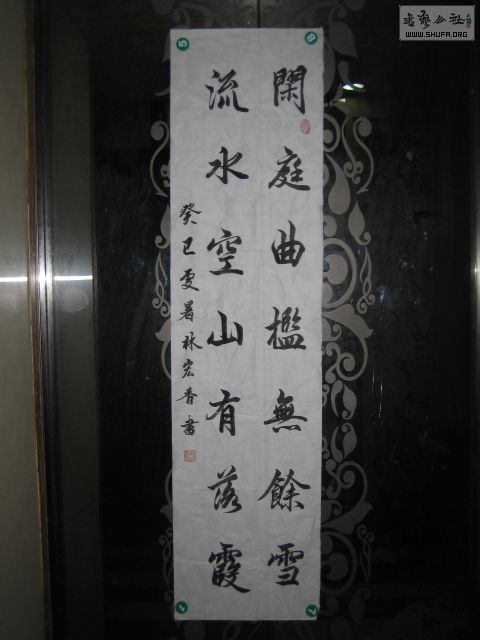 閑庭曲檻無餘雪
流水空山有落霞
癸巳夏暑林宏香書
书艺公社
WWW.SHUFA.ORG